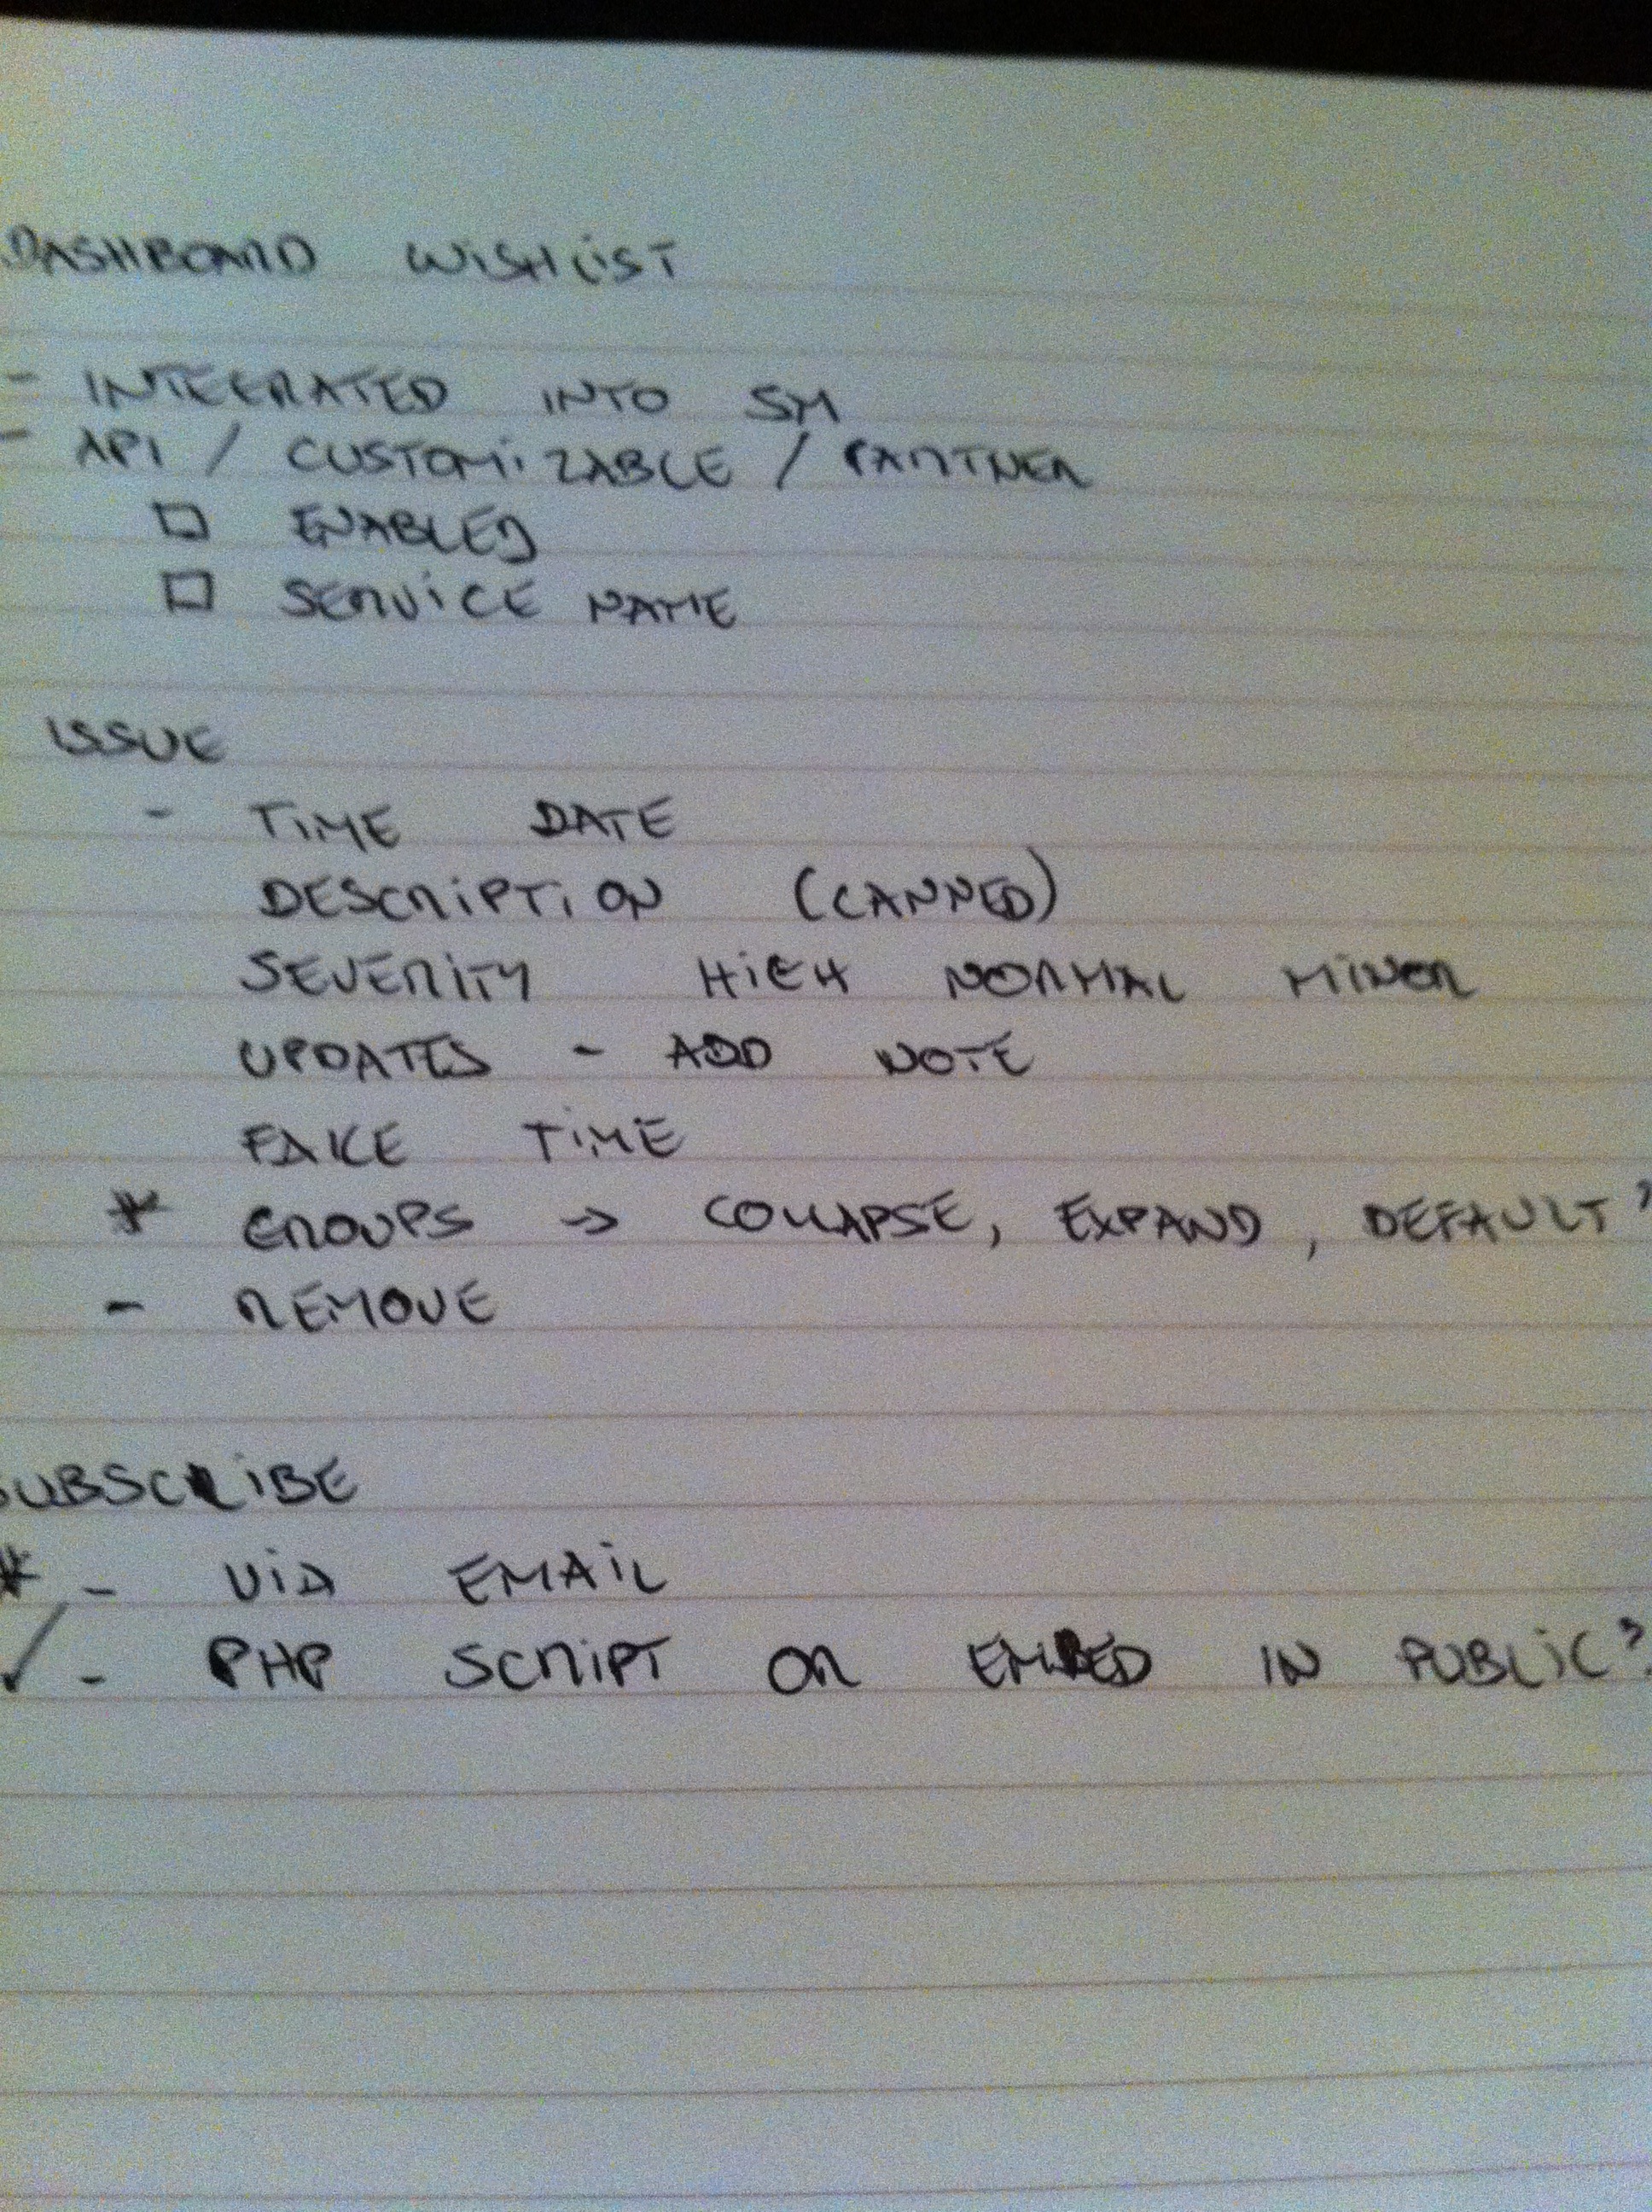 DASHBOARD WISHLIST
- INTEGRATED INTO SM
- API / CUSTOMIZABLE / PARTNER
□ ENABLED
□ SERVICE NAME
ISSUE
- TIME DATE
DESCRIPTION (CANNED)
SEVERITY HIGH NORMAL MINOR
UPDATES - ADD NOTE
FAKE TIME
* GROUPS → COLLAPSE, EXPAND, DEFAULT?
- REMOVE
SUBSCRIBE
* - VIA EMAIL
✓ - PHP SCRIPT OR EMBED IN PUBLIC?